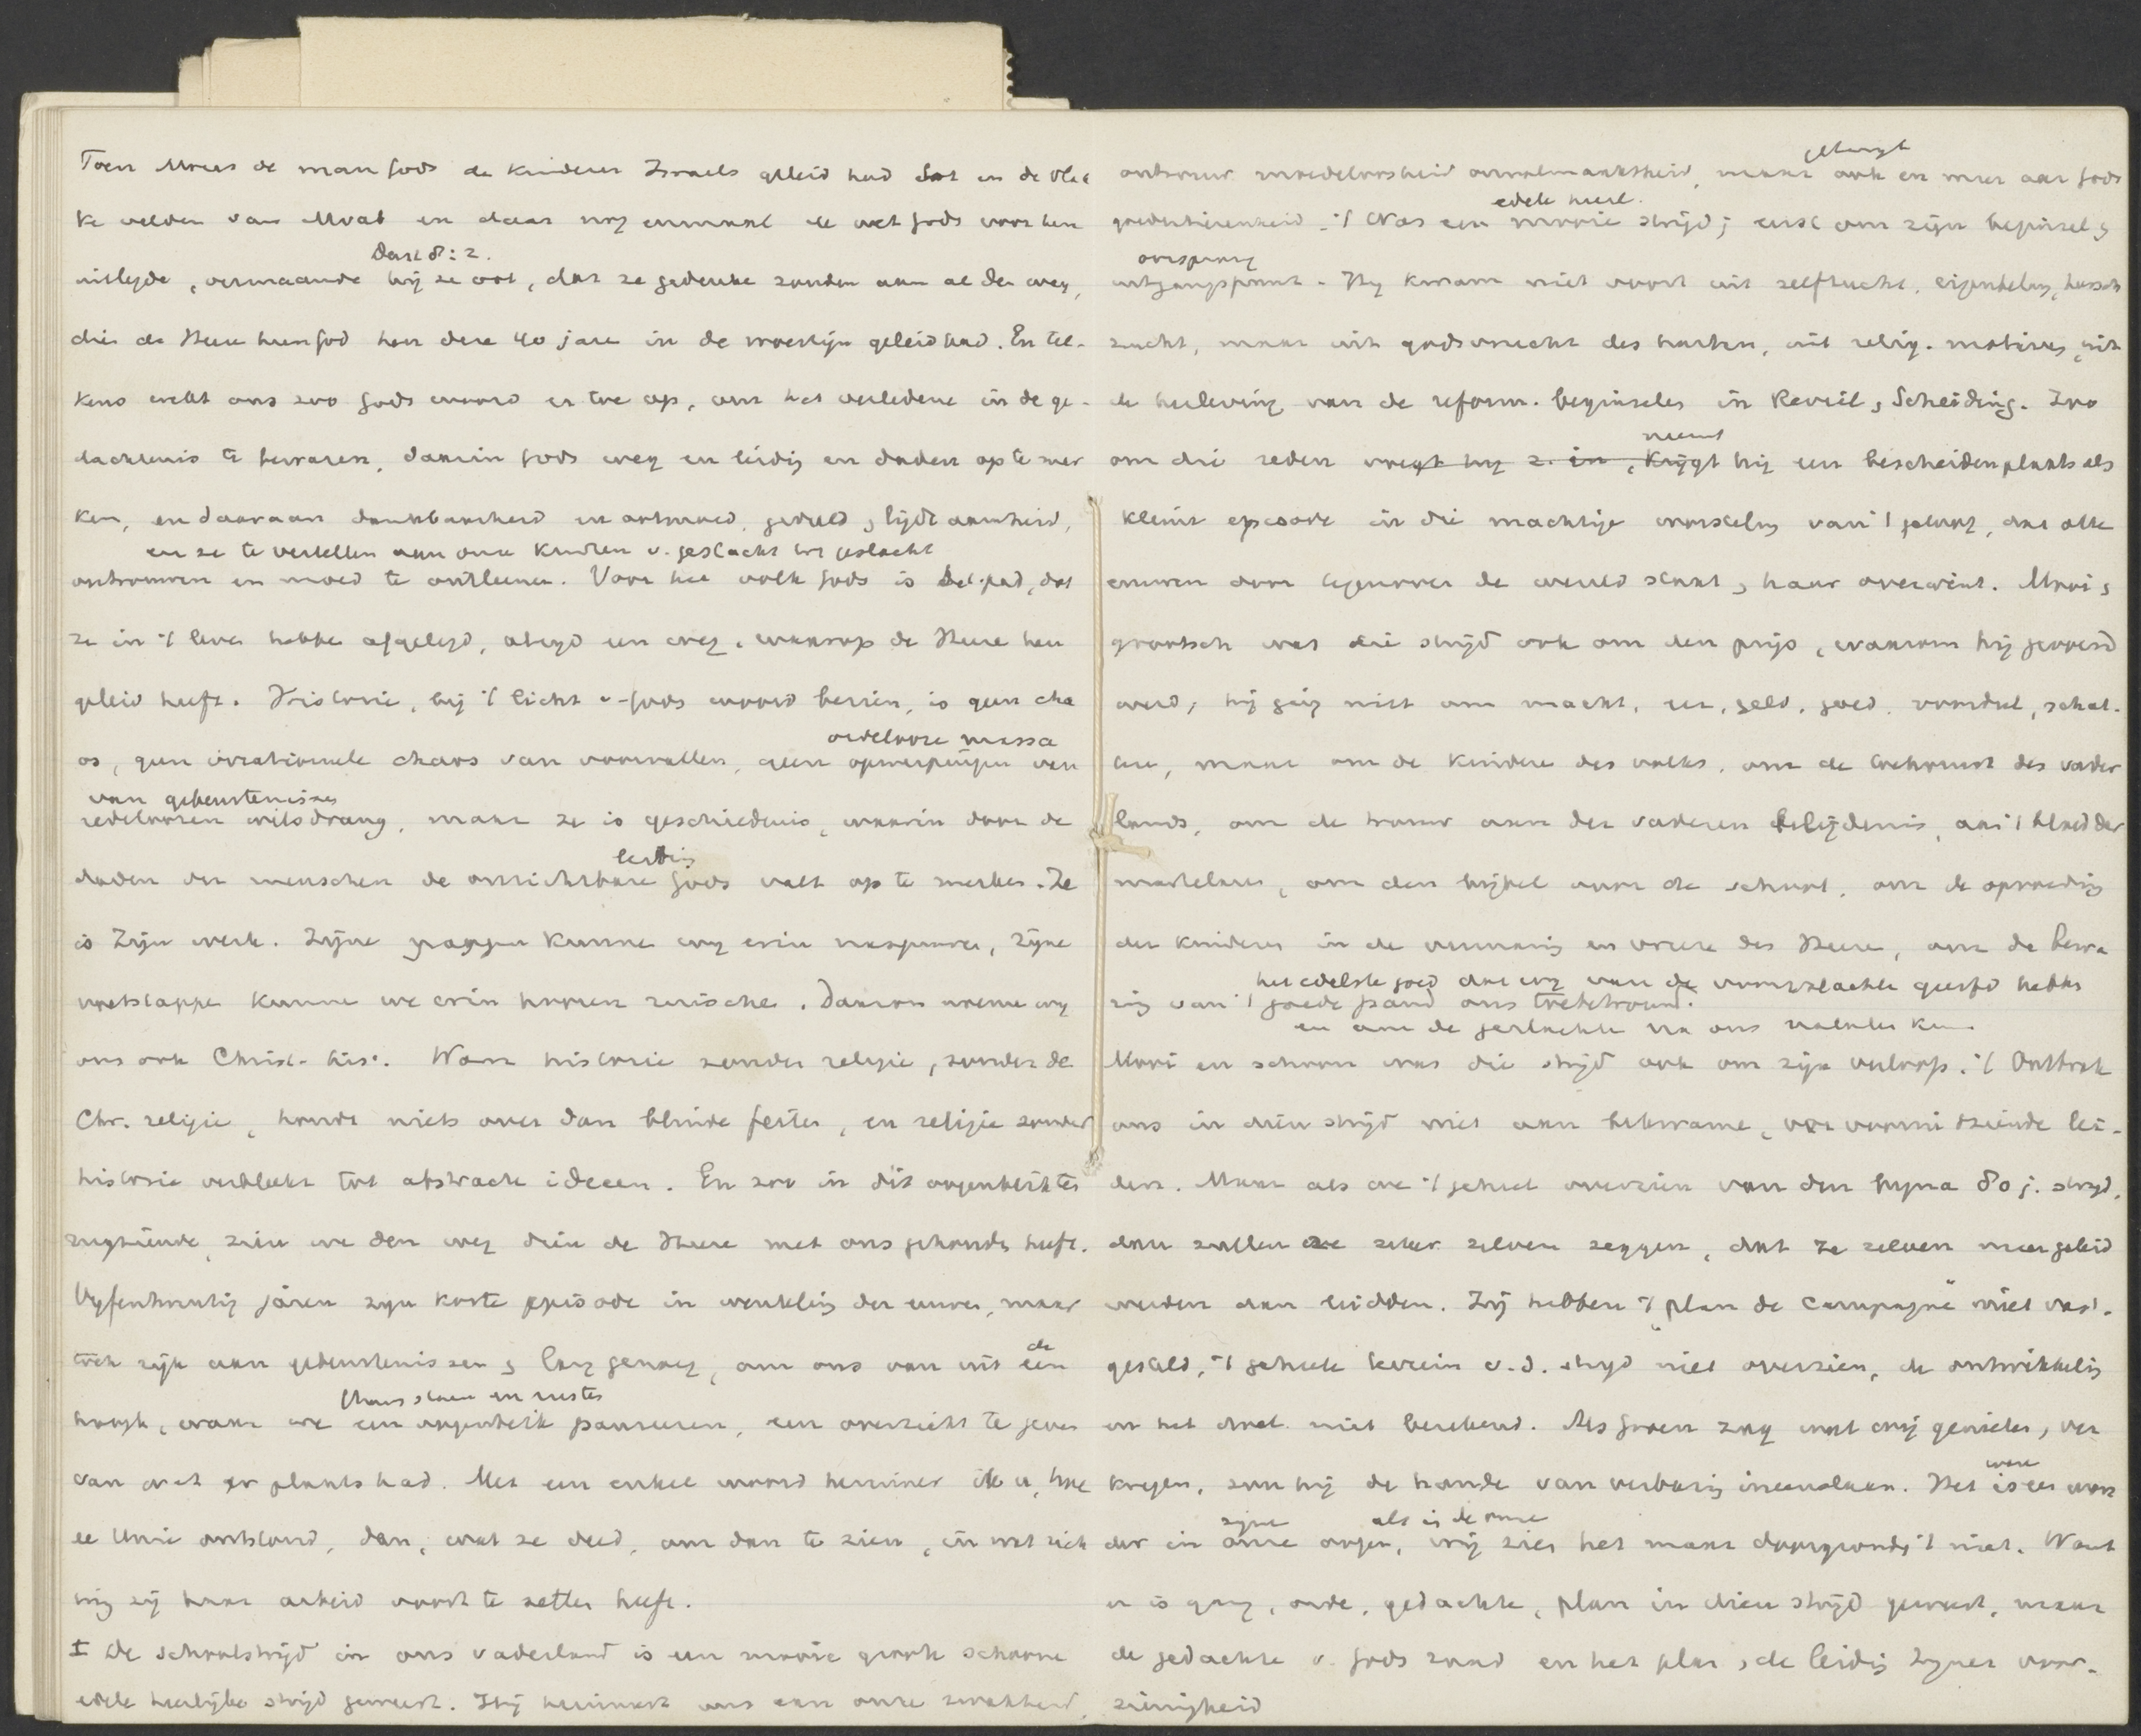 Toen Mozes de man Gods de kinderen Israels geleid had tot in de vlak
ke velden van Moab en daar nog eenmaal de wet Gods voor hen
Deut 8:2.
uitlegde, vermaande hij ze ook, dat ze gedenken zouden aan al den weg,
dien de Heere hun God hen deze 40 jare in de woestijn geleid had. En tel-
kens wekt ons zoo Gods woord er toe op, om het verledene in de ge-
dachtenis te bewaren, daarin Gods weg en leiding en daden op te mer
ken, en daaraan dankbaarheid en ootmoed, geduld, lijdzaamheid,
en ze te vertellen aan onze kindren v. geslacht tot geslacht
vertrouwen en moed te ontleenen. Voor het volk Gods is het pad, dat
ze in 't leven hebben afgelegd, altijd een weg, waarop de Heere hen
geleid heeft. Historie, bij 't licht v. Gods woord bezien, is geen cha
os, geen irrationeele chaos van voorvallen, geen opwerpingen van
ordelooze massa
van gebeurtenissen
redeloozen wilsdrang, maar ze is geschiedenis, waarin door de
leiding
daden der menschen de onzichtbare Gods valt op te merken. Ze
is Zijn werk. Zijne gangen kunnen wij erin naspeuren, Zijne
voetstappen kunnen we erin hooren ruischen. Daarom noemen wij
ons ook Christ. hist. Want historie zonder religie, zonder de
Chr. religie, houdt niets over dan blinde feiten, en religie zonder
historie verbleekt tot abstracte ideeen. En zoo in dit oogenblik te
rugziende, zien we den weg dien de Heere met ons gehouden heeft.
Vijfentwintig jaren zijn korte episode in wenteling der eeuwen, maar
rijk aan gebeurtenissen & lang genoeg, om ons van uit een
de
hoogte, waar we een oogenblik pauseeren, een overzicht te geven
staan en rusten
van wat er plaats had. Met een enkel woord herinner ik u, hoe
de Unie ontstond, dan, wat ze deed, om dan te zien, in wat rich
ting zij haar arbeid voort te zetten heeft.
I De schoolstrijd in ons vaderland is een mooie groote schoone
edele heerlijke strijd geweest. Hij herinnert ons aan onze zwakheid,
ontrouw moedeloosheid onvolmaaktheid, maar ook en meer aan Gods
getuigt
goedertierenheid. 't Was een mooie strijd; eerst om zijn beginsel &
edele heerl.
oorsprong
uitgangspunt. Hij kwam niet voort uit zelfzucht, eigenbelang, heersch
zucht, maar uit godsvrucht des harten, uit relig. motieven, uit
de herleving van de reform. beginselen in Reveil & Scheiding. Zoo
om die reden voegt hij z. in, krijgt hij een bescheiden plaats als
neemt
kleine episode in die machtige worsteling van 't geloof, dat alle
eeuwen door tegenover de wereld staat & haar overwint. Mooi &
grootsch was die strijd ook om den prijs, waarom hij gevoerd
werd; hij ging niet om macht, eer, geld, goed, voordeel, schat-
ten, maar om de kinderen des volks, om de toekomst des vader
lands, om de trouw aan der vaderen belijdenis, aan 't bloed der
martelaren, om den bijbel voor de school, om de opvoeding
der kinderen in de vermaning en vreeze des Heere, om de bewa
het edelste goed dat wij van de voorgeslachten geerfd hebben
ring van 't goede pand ons toebetrouwd.
en aan de geslachten na ons nalaten kunnen
Mooi en schoon was die strijd ook om zijn verloop. 't Ontbrak
ons in dien strijd niet aan bekwame, vooruitziende lei-
ders. Maar als we 't geheel overzien van den bijna 80 j. strijd,
dan zullen ze zeker zelven zeggen, dat ze zelven meer geleid
werden dan leidden. Zij hebben 't "plan de campagne" niet vast-
gesteld, 't geheele terrein v.d. strijd niet overzien, de ontwikkeling
en het doel niet berekend. Als Groen zag wat wij genieten, ver
kregen, zou hij de handen van verbazing ineenslaan. Het is een won
ware
der in onze oogen, wij zien het maar doorgronden 't niet. Want
zijne als in de onze
er is gang, orde, gedachte, plan in dien strijd geweest, maar
de gedachte v. Gods raad en het plan & de leiding Zijner voor-
zienigheid